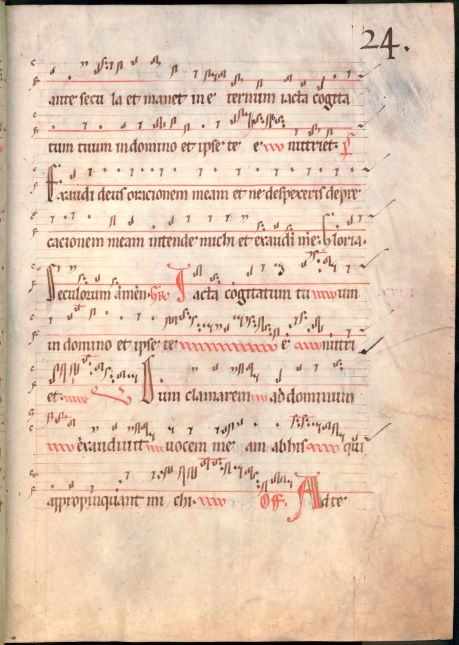 24.
ante secu la et manet in e ternum iacta cogita
tum tuum in domino et ipse te e nutriet ps
Exaudi deus orationem meam et ne despexeris depre
cacionem meam intende michi et exaudi me Gloria.
Seculorum amen. Gr Iacta cogitatum tu um
in domino et ipse te e nutri
et Dum clamarem ad dominum
exaudiuit uocem me am ab his qui
appropinquant mi chi. Off. Ad te